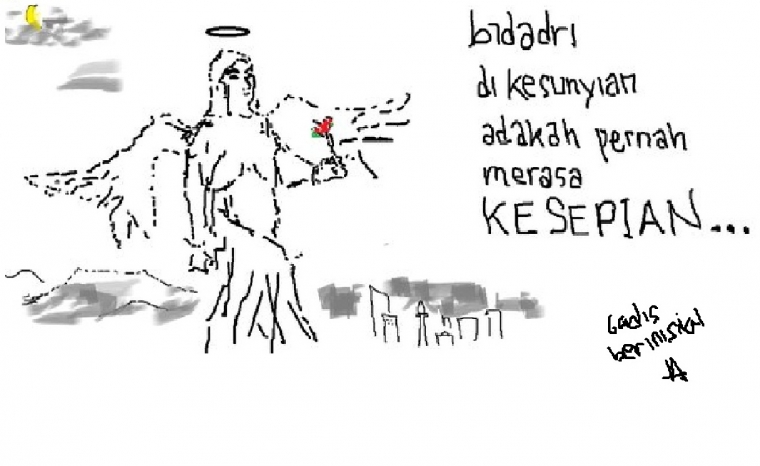 bidadri
di kesunyian
adakah pernah
merasa
KESEPIAN...
Gadis
berinisial
A